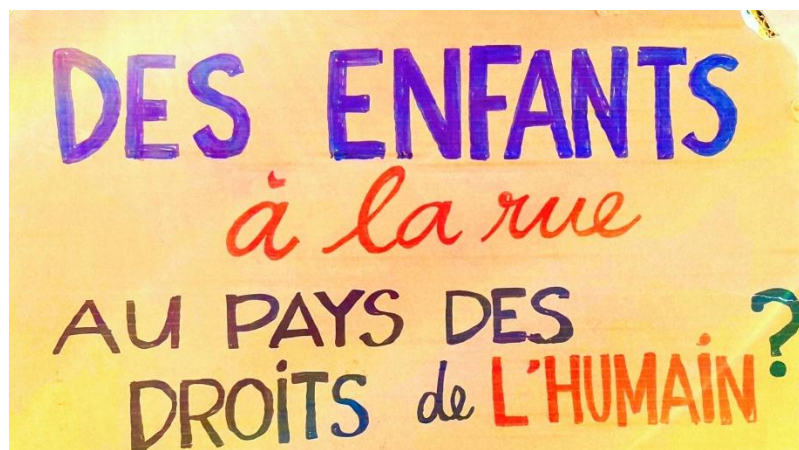 DES ENFANTS
à la rue
AU PAYS DES
DROITS de L'HUMAIN ?